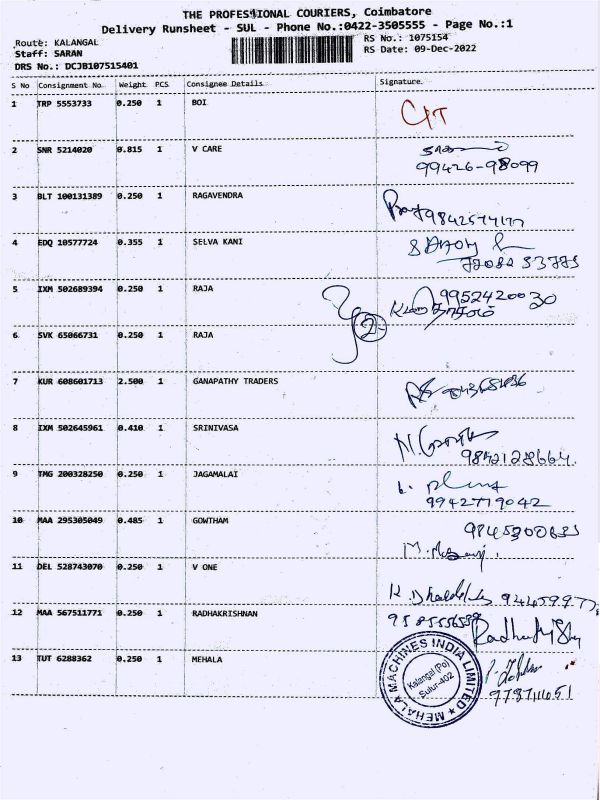 THE PROFESSIONAL COURIERS, Coimbatore
Delivery Runsheet - SUL - Phone No.:0422-3505555 - Page No.:1
Route: KALANGAL
RS No.: 1075154
Staff: SARAN
RS Date: 09-Dec-2022
DRS No.: DCJB107515401
S No Consignment No Weight PCS Consignee Details Signature
1 TRP 5553733 0.250 1 BOI
2 SNR 5214020 0.815 1 V CARE
99426-98099
3 BLT 100131389 0.250 1 RAGAVENDRA
4 EDQ 10577724 0.355 1 SELVA KANI
5 IXM 502689394 0.250 1 RAJA 9952420030
2
6 SVK 65066731 0.250 1 RAJA
7 KUR 608601713 2.500 1 GANAPATHY TRADERS
8 IXM 502645961 0.410 1 SRINIVASA
9842128664
9 TMG 200328250 0.250 1 JAGAMALAI
9942719042
10 MAA 295305049 0.485 1 GOWTHAM
11 DEL 528743070 0.250 1 V ONE
12 MAA 567511771 0.250 1 RADHAKRISHNAN
13 TUT 6288362 0.250 1 MEHALA
MEHALA MACHINES INDIA LIMITED
Kalangal (Po)
Sulur-402